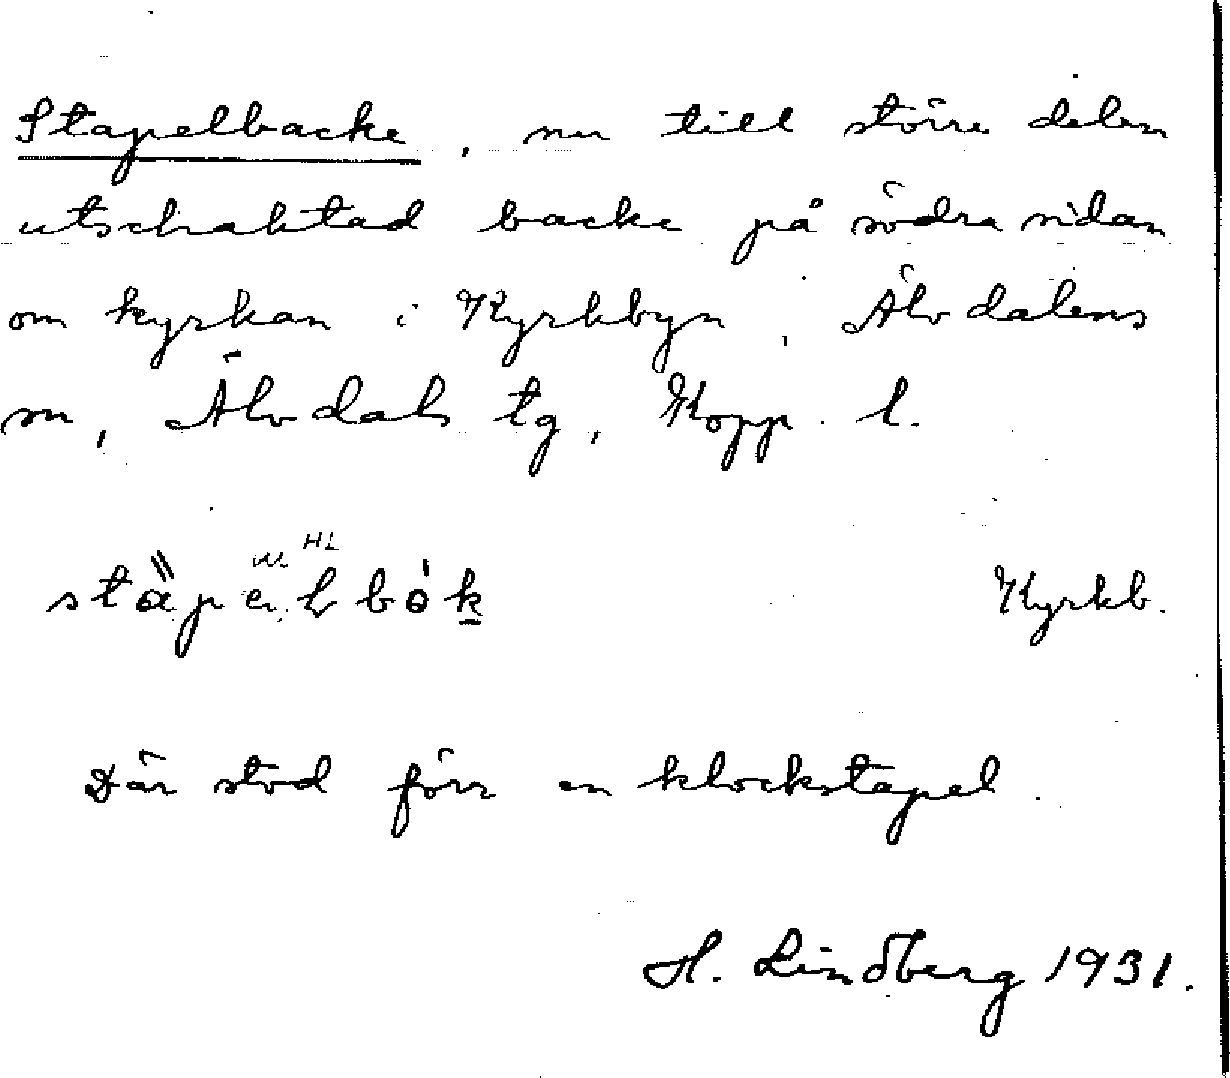 Stapelbacke, nu till större delen
utschaktad backe på södra sidan
om kyrkan i Kyrkbyn, Älvdalens
sn, Älvdals tg, Kopp. l.
HL
Kyrkb.
Där stod förr en klockstapel.
H. Lindberg 1931.